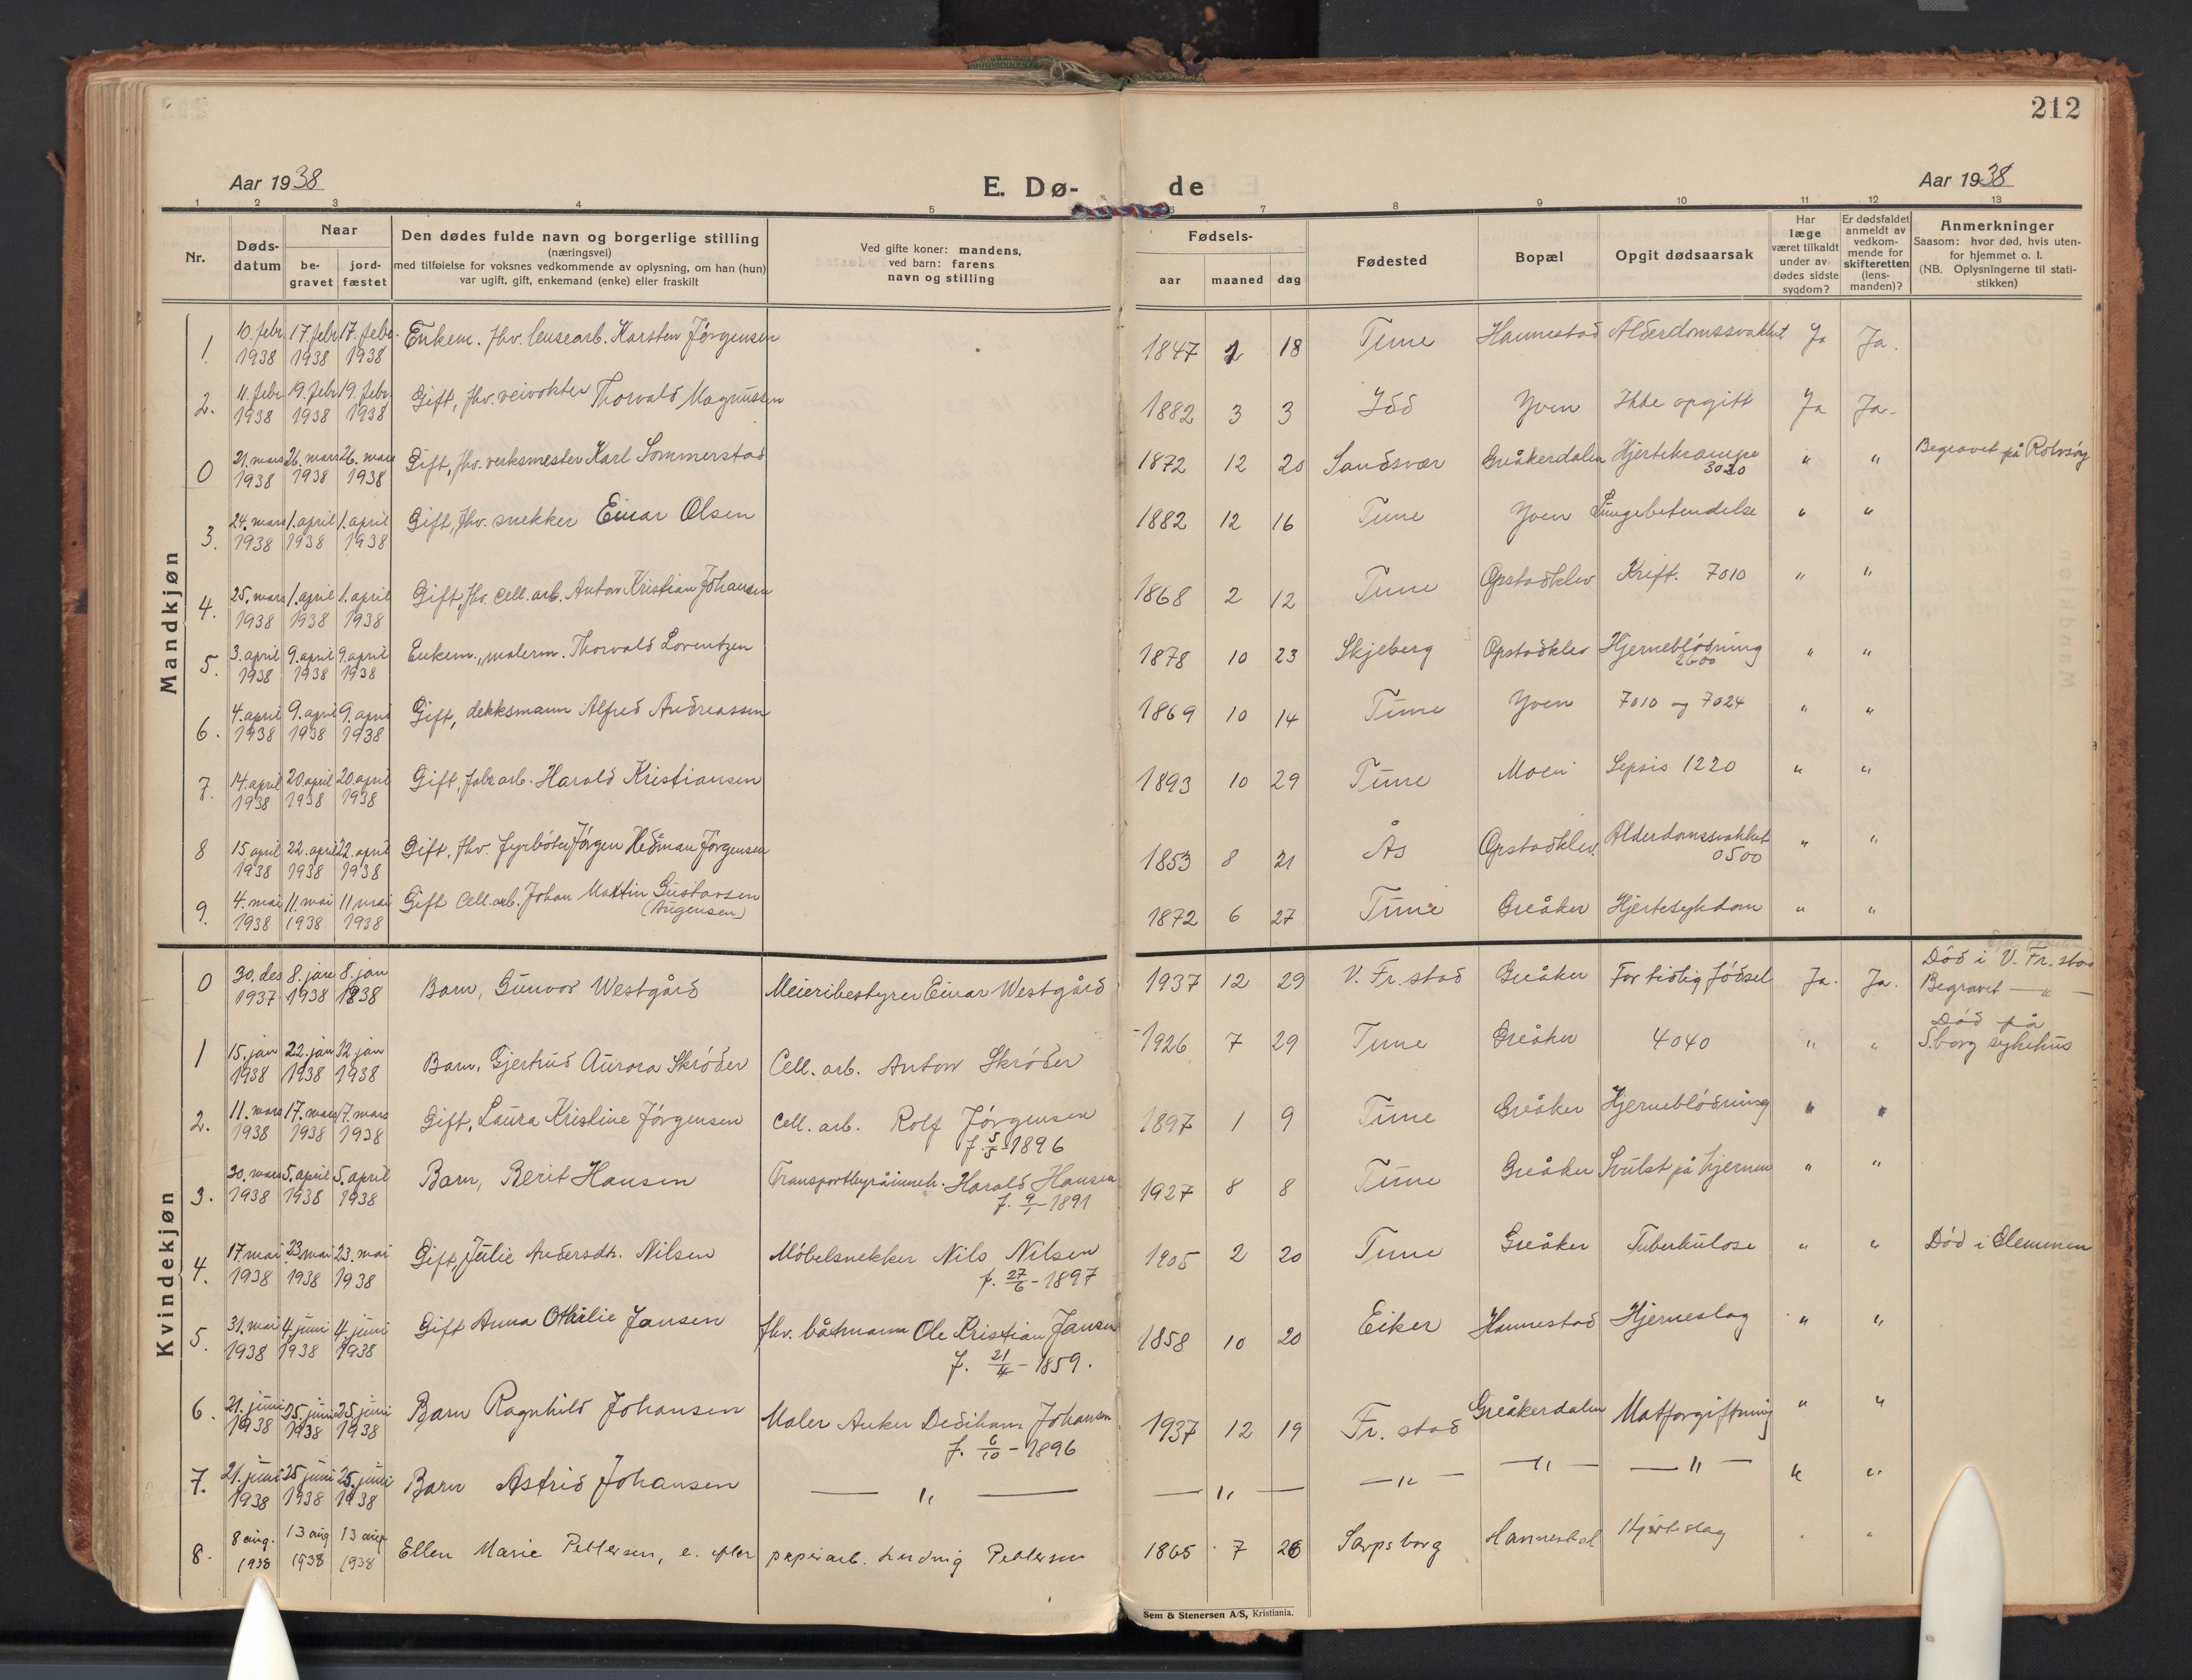 212
Aar 1938
E. Dø-
de
Aar 1938
1 2 3 4 5 6 7 8 9 10 11 12 13
Nr.
Døds-
datum
Naar
be-
gravet
jord-
fæstet
Den dødes fulde navn og borgerlige stilling
(næringsvei)
med tilføielse for voksnes vedkommende av oplysning, om han (hun)
var ugift, gift, enkemand (enke) eller fraskilt
Ved gifte koner: mandens,
ved barn: farens
navn og stilling
Fødsels-
aar maaned dag
Fødested
Bopæl
Opgit dødsaarsak
Har
læge
været tilkaldt
under av-
dødes sidste
sygdom?
Er dødsfaldet
anmeldt av
vedkom-
mende for
skifteretten
(lens-
manden)?
Anmerkninger
Saasom: hvor død, hvis uten-
for hjemmet o. l.
(NB. Oplysningerne til stati-
stikken)
Mandkjøn
1. 10. febr. 1938 17. febr. 1938 17. febr. 1938 Enkem. fhv. lensearb. Karsten Jörgensen 1847 18 Tune Hannestad Alderdomssvakhet Ja Ja.
2. 11. febr. 1938 19. febr. 1938 19. febr. 1938 Gift, fhv. veivokter Thorvald Magnussen 1882 3 3 Idd Yven Ikke opgitt Ja Ja.
0 21. mars 1938 26. mars 1938 26. mars 1938 Gift, fhv. verksmester Karl Sommerstad 1872 12 20 Sandsvær Greåkerdalen Hjertekrampe " " Begravet på Rolvsöy
3. 24. mars 1938 1. april 1938 1. april 1938 Gift, fhv. snekker Einar Olsen 1882 12 16 Tune Yven Lungebetendelse " "
4. 25. mars 1938 1. april 1938 1. april 1938 Gift, fhv. cell. arb. Anton Kristian Johansen 1868 2 12 Tune Opstadklev Kreft. 7010 " "
5. 3. april 1938 9. april 1938 9. april 1938 Enkem., malerm. Thorvald Lorentzen 1878 10 23 Skjeberg Opstadklev Hjerneblödning
2600 " "
6. 4. april 1938 9. april 1938 9. april 1938 Gift, dekksmann Alfred Andreassen 1869 10 14 Tune Yven 7010 og 7024 " "
7. 14. april 1938 20 april 1938 20. april 1938 Gift, fabr. arb. Harald Kristiansen 1893 10 29 Tune Moen Sepsis 1220 " "
8 15. april 1938 22. april 1938 22. april 1938 Gift, fhv. fyrböter Jörgen Jörgensen 1853 8 21 Ås Opstadklev. Alderdomssvakhet
0500 " "
9. 4. mai 1938 11. mai 1938 11 mai 1938 Gift Cell. arb. Johan Martin Gustavsen
1872 6 27 Tune Greåker Hjertesykdom " "
Kvindekjøn
0 30. des 1937 8. jan 1938 8. jan 1938 Barn, Gunvor Westgård Meieribestyrer Einar Westgård 1937 12 29 V. Fr. stad Greåker For tidlig födsel Ja. Ja. Död i V. Fr. stad
Begravet — " —
1 15. jan 1938 22. jan 1938 22 jan 1938 Barn, Gjertrud Aurora Skröder Cell. arb. Anton Skröder 1926 7 29 Tune Greåker 4040 " " Död på
S.borg sykehus
2. 11. mars 1938 17. mars 1938 17. mars 1938 Gift, Laura Kristine Jörgensen Cell. arb. Rolf Jörgensen
f. 5/5 1896 1897 1 9 Tune Greåker Hjerneblödning " "
3. 30. mars 1938 5. april 1938 5. april 1938 Barn, Berit Hansen Transportbyråinneh. Harald Hansen
f. 9/1 - 1891 1927 8 8 Tune Greåker Svulst på hjernen " "
4. 17. mai 1938 23 mai 1938 23. mai 1938 Gift, Julie Andersdtr. Nilsen Möbelsnekker Nils Nilsen
f. 27/6 - 1897 1905 2 20 Tune Greåker Tuberkulose " " Död i Glemmen
5. 31. mai 1938 4. juni 1938 4. juni 1938 Gift Anna Othilie Jansen fhv. båtmann Ole Kristian Jansen
f. 21/4 - 1859. 1858 10 20 Eiker Hannestad Hjerneslag " "
6. 21. juni 1938 25. juni 1938 25. juni 1938 Barn Ragnhild Johansen Maler Anker Johansen
f. 6/10 - 1896 1937 12 19 Fr. stad Greåkerdalen Matforgiftning " "
7. 21. juni 1938 25 juni 1938 25. juni 1938 Barn Astrid Johansen — " — — " — — " — — " — — " — " "
8. 8 aug. 1938 13 aug 1938 13 aug 1938 Ellen Marie Pettersen, e. efter papirarb. Ludvig Pettersen 1865 7 Sarpsborg Hannestad Hjerteslag " "
Sem & Stenersen A/S, Kristiania.